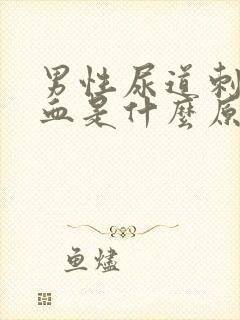 男性尿道刺
血是什麼原
鱼燼